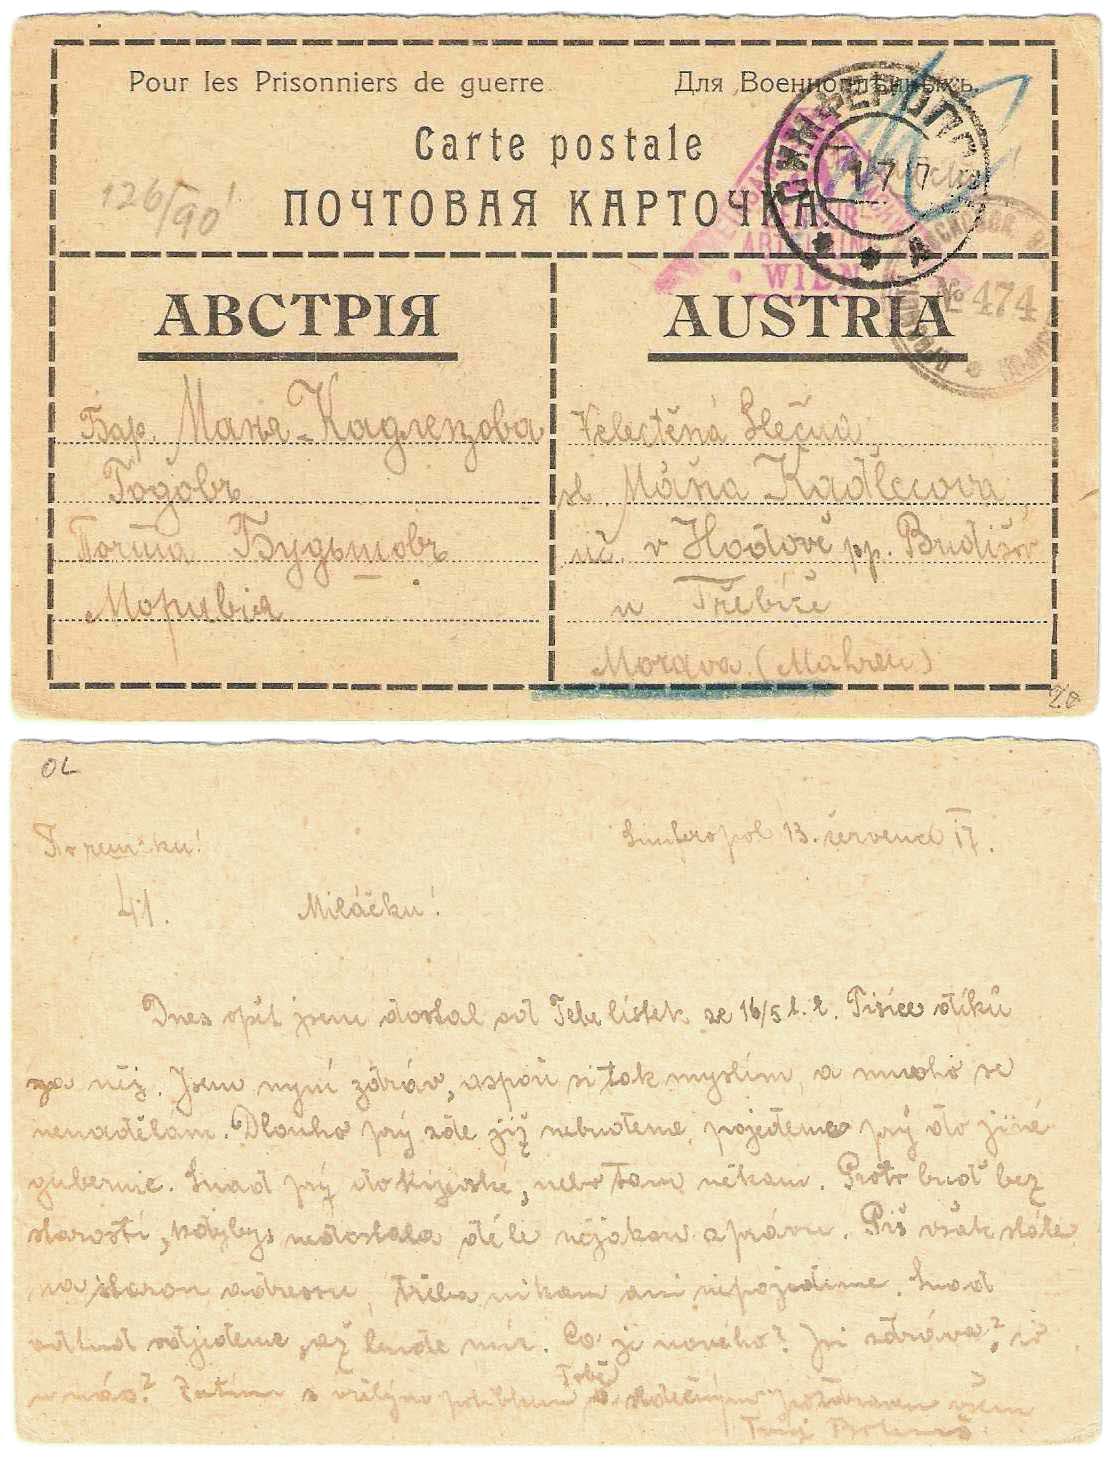 Pour les Prisonniers de guerre
Для Военноплѣнныхъ.
Carte postale
ПОЧТОВАЯ КАРТОЧКА.
126/90
СИМФЕРОПОЛ
17 7 17
А
WIEN
№ 474
АВСТРІЯ
Бар. Маня Кадлецова
Годовъ
Почта Будышовъ
Моравія
AUSTRIA
Velectěná Slečna,
sl. Máňa Kadlecova,
uč. v Hodově pp. Budišov
u Třebíče
Morava (Mähren)
20
OL
Simferopol 13. července 17.
41.
Miláčku!
Dnes opět jsem dostal od Tebe lístek ze 16/5 t. r. Tisíce díků
za něj. Jsem nyní zdráv, aspoň si tak myslím, a mnoho se
nenadělám. Dlouho prý zde již nebudeme, pojedeme prý do jiné
gubernie. Snad prý do kijevské, nebo tam někam. Proto buď bez
starosti, kdybys nedostala déle nějakou zprávu. Piš však stále
na starou adressu, třeba nikam ani nepojedeme. Snad
odtud odjedeme, až bude mír. Co je nového? Jsi zdráva?, co
u nás? Zatím s vřelým polibkem Tobě a srdečným pozdravem všem
Tvůj